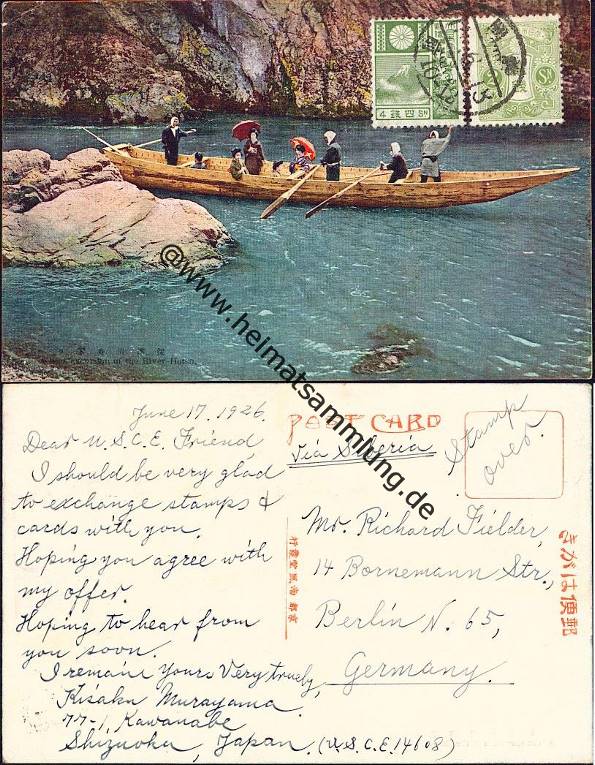 4 銭四 Sn
@www.heimatsammlung.de
of the River Hotsu.
June 17. 1926.
Dear U.S.C.E. Friend,
I should be very glad
to exchange stamps &
cards with you.
Hoping you agree with
my offer.
Hoping to hear from
you soon.
I remain Yours Very truely,
Kisaku Murayama
77-1, Kawanabe
Shizuoka, Japan. (U.S.C.E. 14608)
POST CARD
Via Siberia
Stamp
over.
Mr. Richard Fielder,
14 Bornemann Str.,
Berlin N. 65,
Germany.
きがは便郵